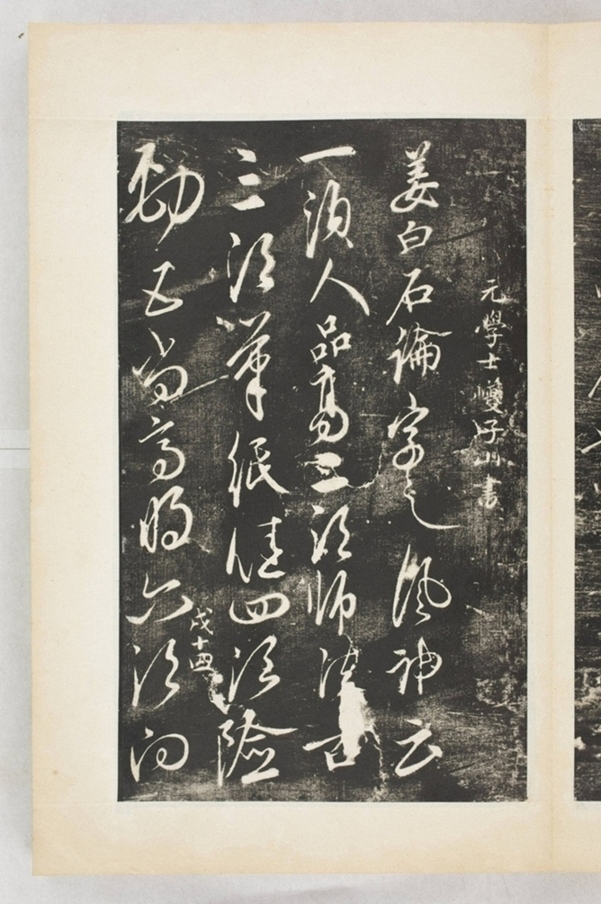 元學士巙子山書
姜白石論字之風神云
一須人品高二須師法古
三須筆紙佳四須險
戊十四
勁五尚高明六須向